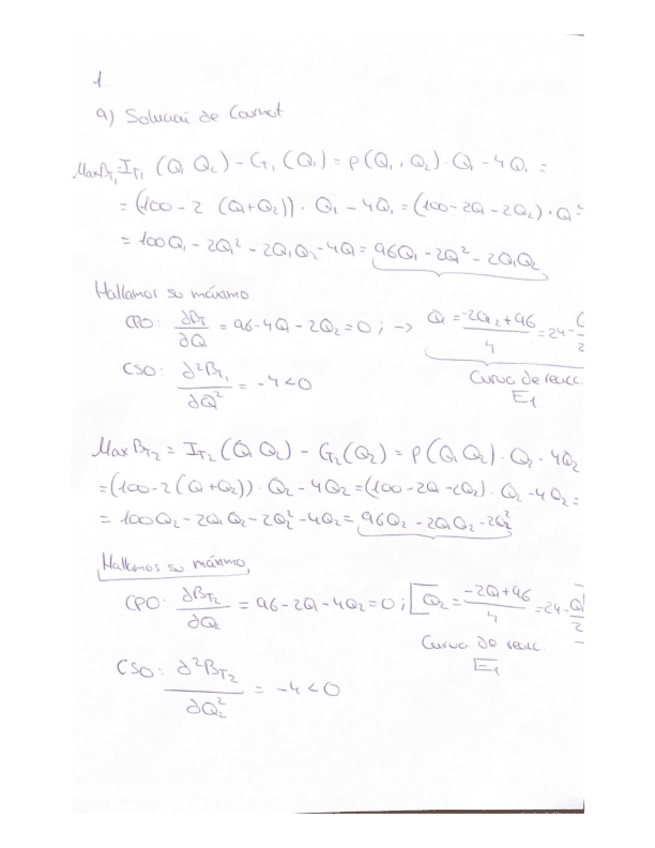 1.
a) Solución de Cournot
Max BT1 = IT1 (Q1 Q2) - CT1 (Q1) = p(Q1, Q2) · Q1 - 4Q1 =
= (100 - 2 (Q1+Q2)) · Q1 - 4Q1 = (100 - 2Q1 - 2Q2) · Q1 =
= 100Q1 - 2Q1² - 2Q1Q2 - 4Q1 = 96Q1 - 2Q1² - 2Q1Q2
Hallamos su máximo.
CPO: ∂BT1/∂Q1 = 96 - 4Q1 - 2Q2 = 0 ; -> Q1 = (-2Q2 + 96)/4 = 24 -
CSO: ∂²BT1/∂Q1² = -4 < 0
Curva de reacc.
E1
Max BT2 = IT2 (Q1 Q2) - CT2 (Q2) = p(Q1 Q2) · Q2 - 4Q2
= (100 - 2(Q1+Q2)) · Q2 - 4Q2 = (100 - 2Q1 - 2Q2) · Q2 - 4Q2 =
= 100Q2 - 2Q1Q2 - 2Q2² - 4Q2 = 96Q2 - 2Q1Q2 - 2Q2²
Hallamos su máximo,
CPO: ∂BT2/∂Q2 = 96 - 2Q1 - 4Q2 = 0 ; Q2 = (-2Q1 + 96)/4 = 24 - Q1/2
Curva de reacc.
E1
CSO: ∂²BT2/∂Q2² = -4 < 0